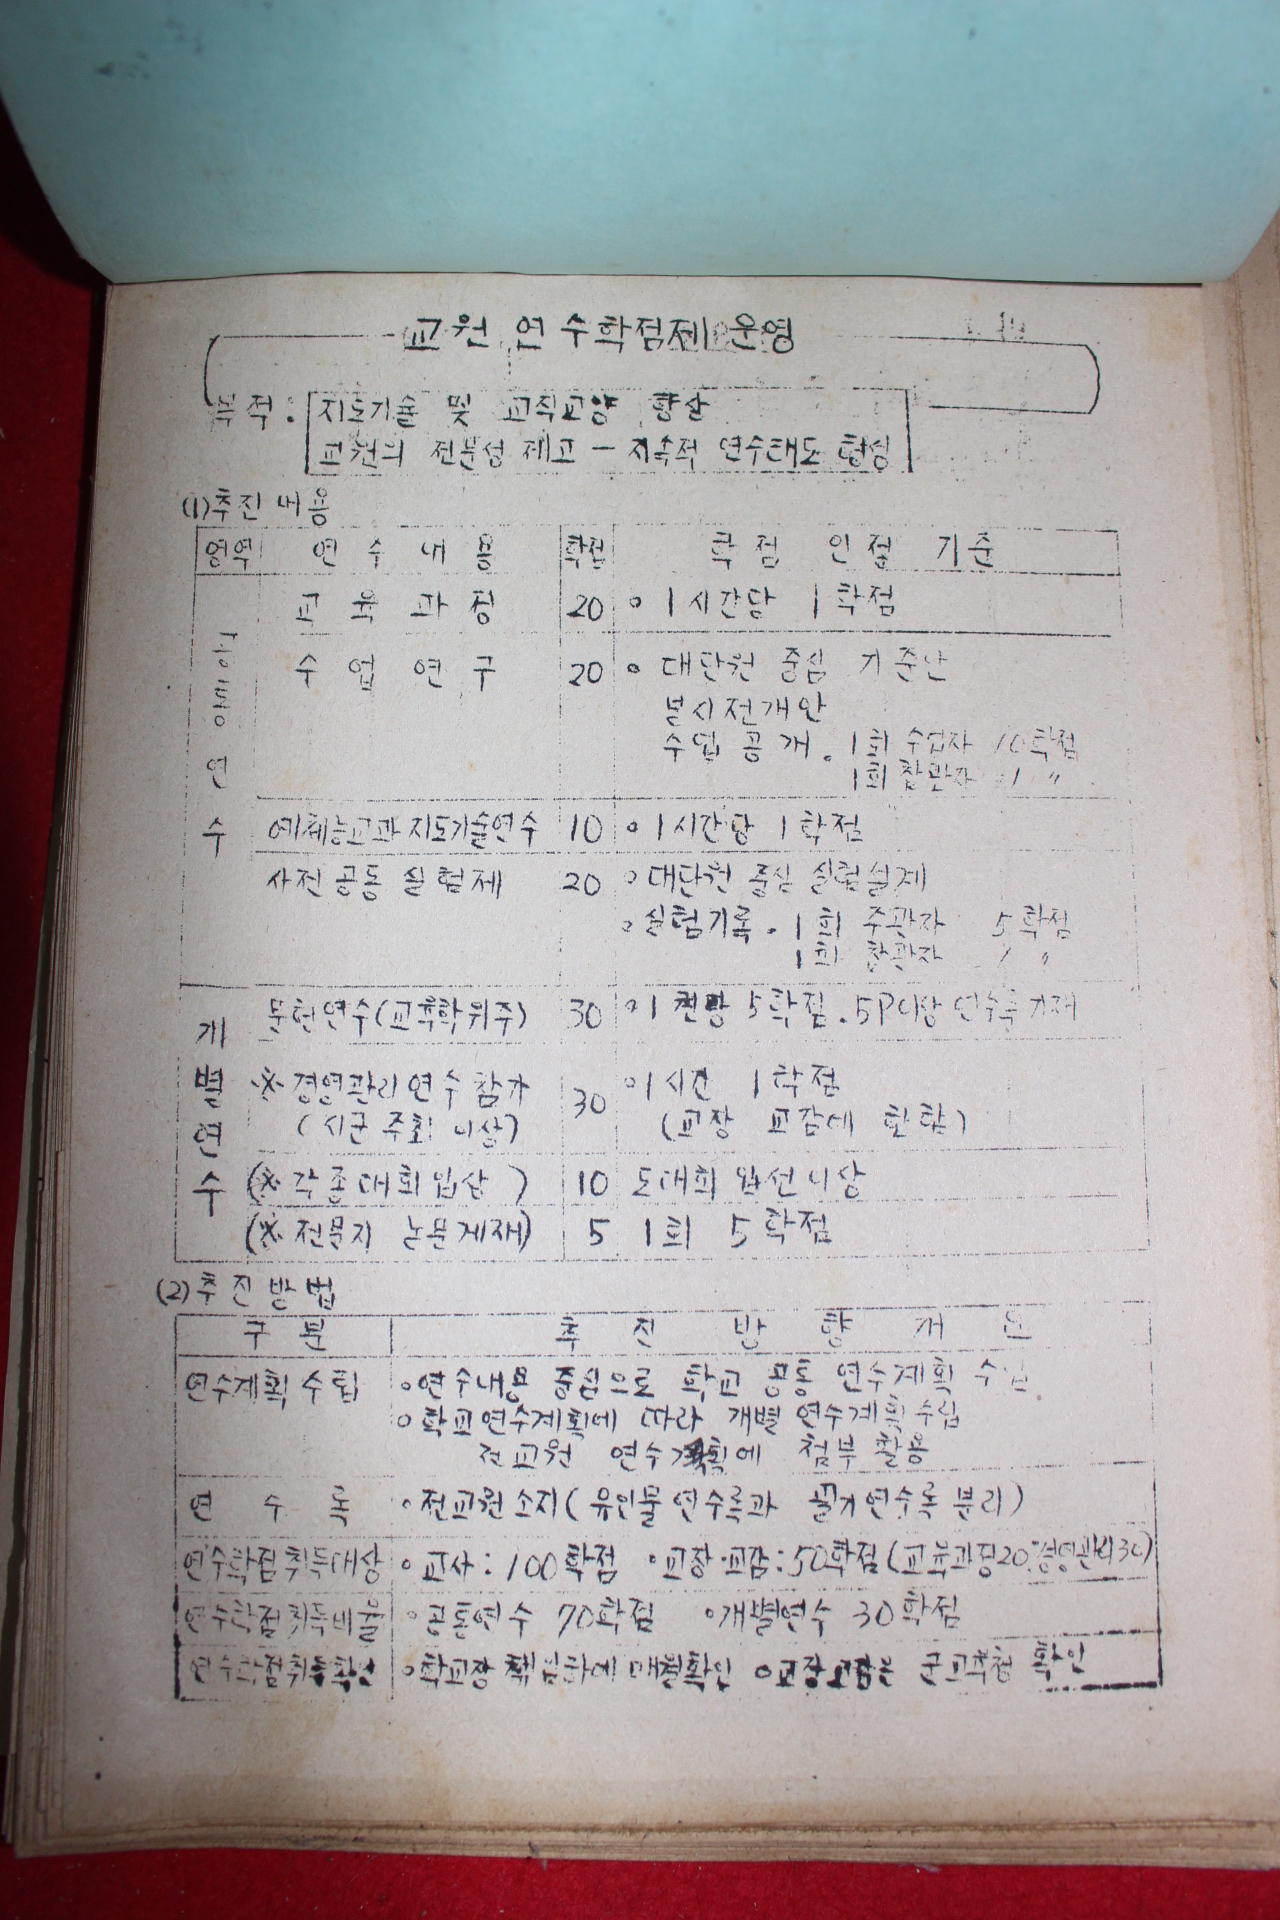 교원 연수학점제 운영
목적 : 지도기술 및 교직교양 향상
교원의 전문성 제고 - 지속적 연수태도 형성
(1) 추진내용
영역 연수내용 학점 학점인정기준
공동연수
교육과정 20 o 1시간당 1학점
수업연구 20 o 대단원 중심 기준안
본시전개안
수업공개. 1회 수업자 10학점
1회 참관자 1 〃
예체능교과지도기술연수 10 o 1시간당 1학점
사전공동실험제 20 o 대단원 중심 실험설계
o 실험기록. 1회 주관자 5학점
1회 참관자 1 〃
개별연수
문헌연수(교육학위주) 30 o 1권당 5학점. 5P이상 연수록 기재
※ 경영관리연수참가 30 o 1시간 1학점
(시군 주최 이상) (교장 교감에 한함)
(※ 각종대회입상) 10 도대회 입선이상
(※ 전문지 논문게재) 5 1회 5학점
(2) 추진방법
구분 추진방향개요
연수계획수립 o 연수내용 중심으로 학교 공동 연수계획 수립.
o 학교연수계획에 따라 개별 연수계획 수립
전교원 연수계획에 첨부 활용
연수록 o 전교원 소지 (유인물 연수록과 필기연수록 분리)
연수학점취득대상 o 교사 : 100학점 o 교장·교감 : 50학점 (교육과정20. 경영관리30)
연수학점취득비율 o 공동연수 70학점 o 개별연수 30학점
연수학점취득확인 o 학교장 책임하에 매월확인 o 교장교감은 군교육청 확인